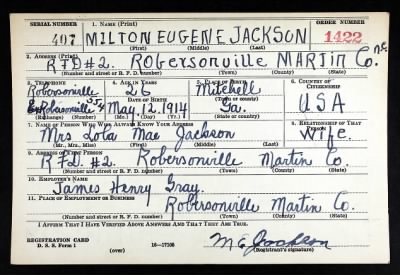 SERIAL NUMBER 1. NAME (Print) ORDER NUMBER
407 MILTON EUGENE JACKSON 1422
(First) (Middle) (Last)
2. ADDRESS (Print)
RFD #2. RObersonville MARTIN Co. NC
(Number and street or R. F. D. number) (Town) (County) (State)
3. TELEPHONE 4. AGE IN YEARS 5. PLACE OF BIRTH 6. COUNTRY OF CITIZENSHIP
Robersonville 26 Mitchell
DATE OF BIRTH (Town or county)
May, 12, 1914 Ga. USA
(Exchange) (Number) (Mo.) (Day) (Yr.) (State or country)
7. NAME OF PERSON WHO WILL ALWAYS KNOW YOUR ADDRESS 8. RELATIONSHIP OF THAT PERSON
Mrs Lola Mae Jackson Wife.
(Mr., Mrs., Miss) (First) (Middle) (Last)
9. ADDRESS OF THAT PERSON
RFD. #2 Robersonville Martin Co.
(Number and street or R. F. D. number) (Town) (County) (State)
10. EMPLOYER'S NAME
James Henry Gray.
11. PLACE OF EMPLOYMENT OR BUSINESS
Robersonville Martin Co.
(Number and street or R. F. D. number) (Town) (County) (State)
I AFFIRM THAT I HAVE VERIFIED ABOVE ANSWERS AND THAT THEY ARE TRUE.
REGISTRATION CARD
D. S. S. Form 1 (over) 16—17105 M E Jackson
(Registrant's signature)